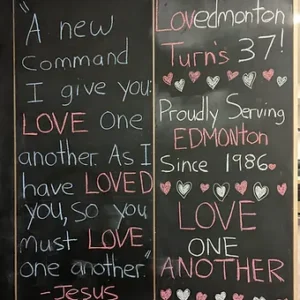 "
A new
command
I give you:
LOVE One
another. As I
have LOVED
you, So you
must LOVE
one another."
-Jesus
LOVedmonton
Turn's 37!
Proudly Serving
EDMONton
Since 1986
LOVE
ONE
ANOTHER